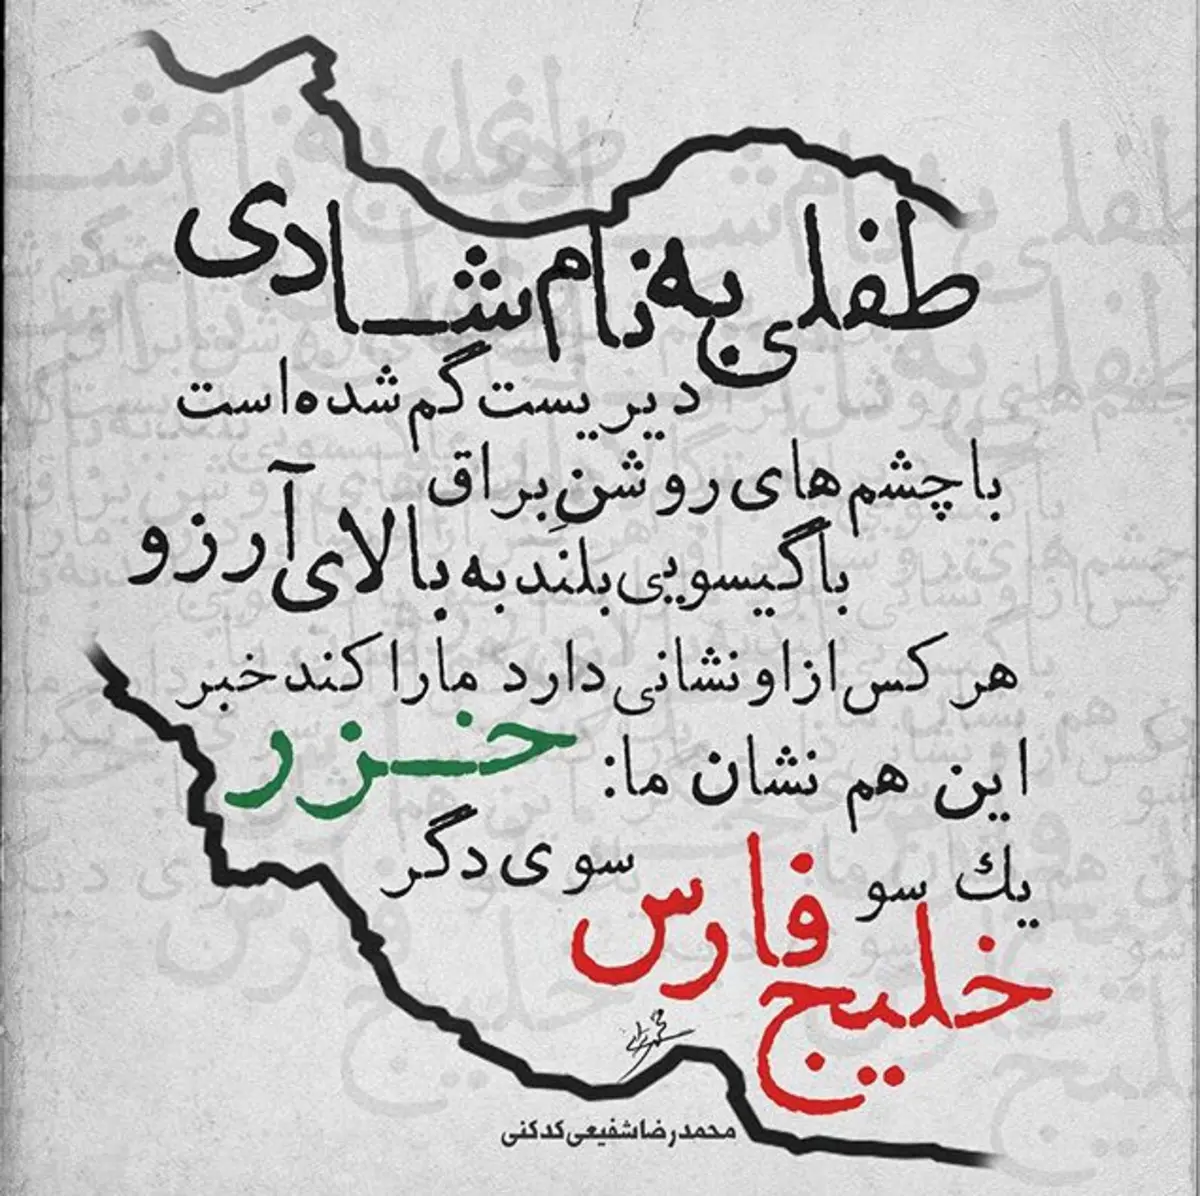 طفلی به نام شادی
دیریست گم شده است
با چشم های روشنِ براق
با گیسویی بلند به بالای آرزو
هر کس از او نشانی دارد ما را کند خبر
این هم نشان ما:
خزر
یك سو
خلیج فارس
سوی دگر
محمدرضا شفیعی کدکنی